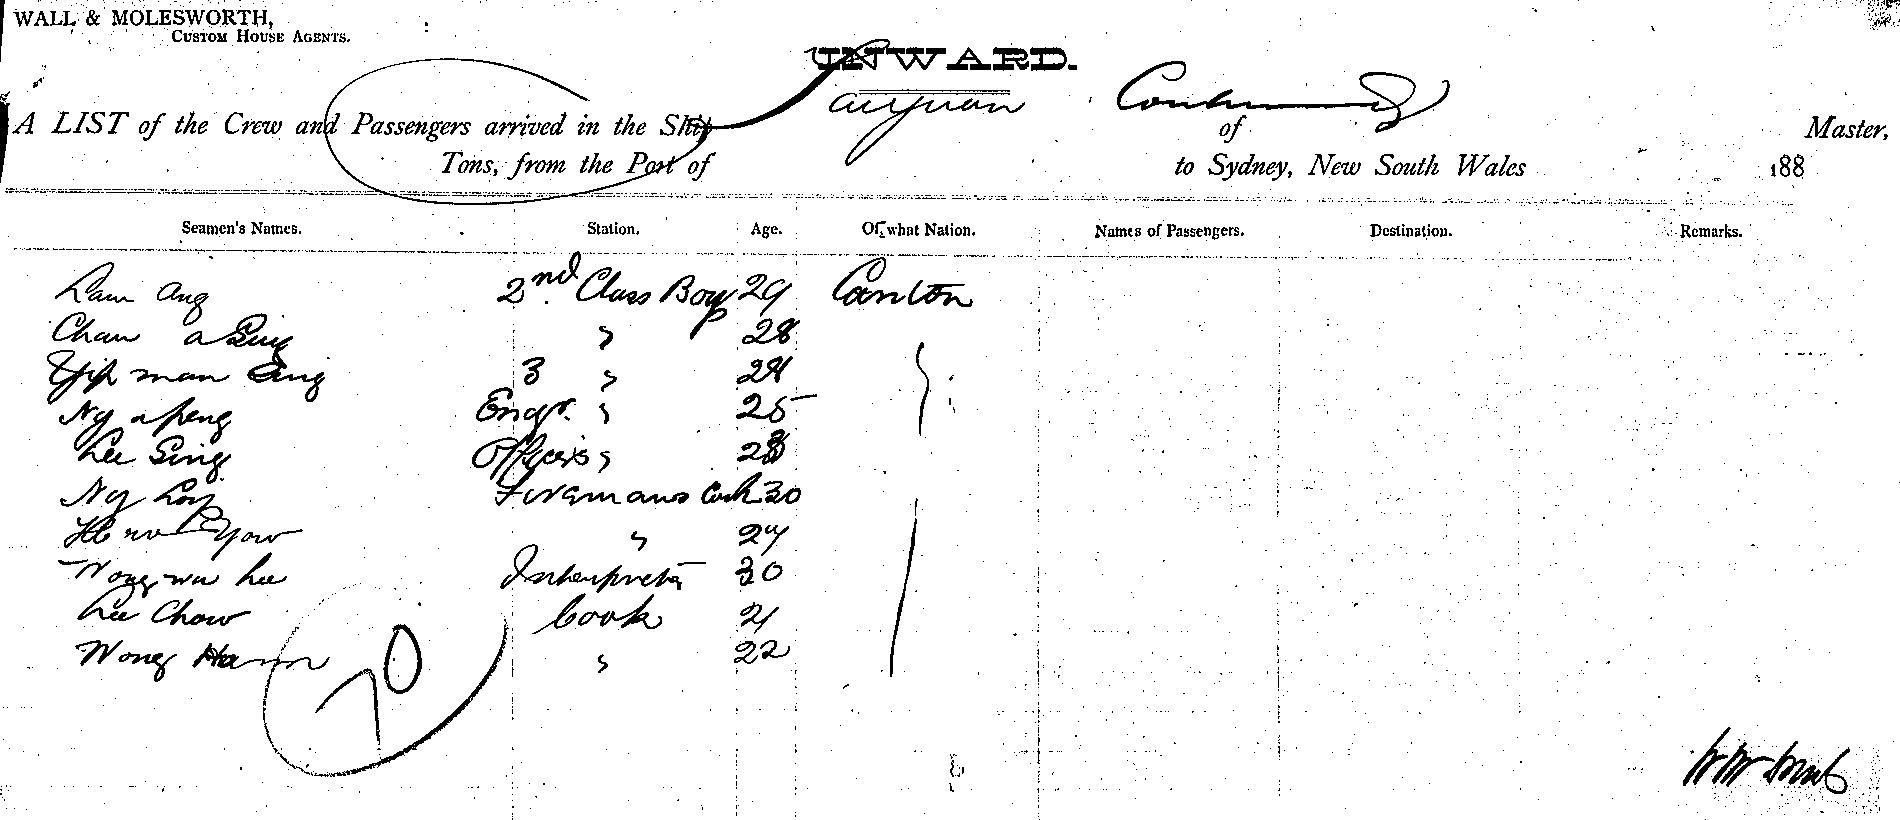 WALL & MOLESWORTH,
CUSTOM HOUSE AGENTS.
INWARD.
A LIST of the Crew and Passengers arrived in the Ship of Master,
Tons, from the Port of to Sydney, New South Wales 188
Seamen's Names. Station. Age. Of what Nation. Names of Passengers. Destination. Remarks.
Lam Ang 2nd Class Boy 29 Canton
Chan a Sing " 28
Yip man Sing 3 "
Ng a peng Engr. " 25
Lee Sing Officers "
Ng Loy Firemans Cook 30
Yow "
Wong wa hee Interpreter 30
Lee Chow Cook 21
Wong Hann " 22
70